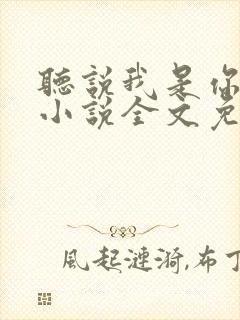 聽説我是你
小説全文免
風起漣漪,布丁